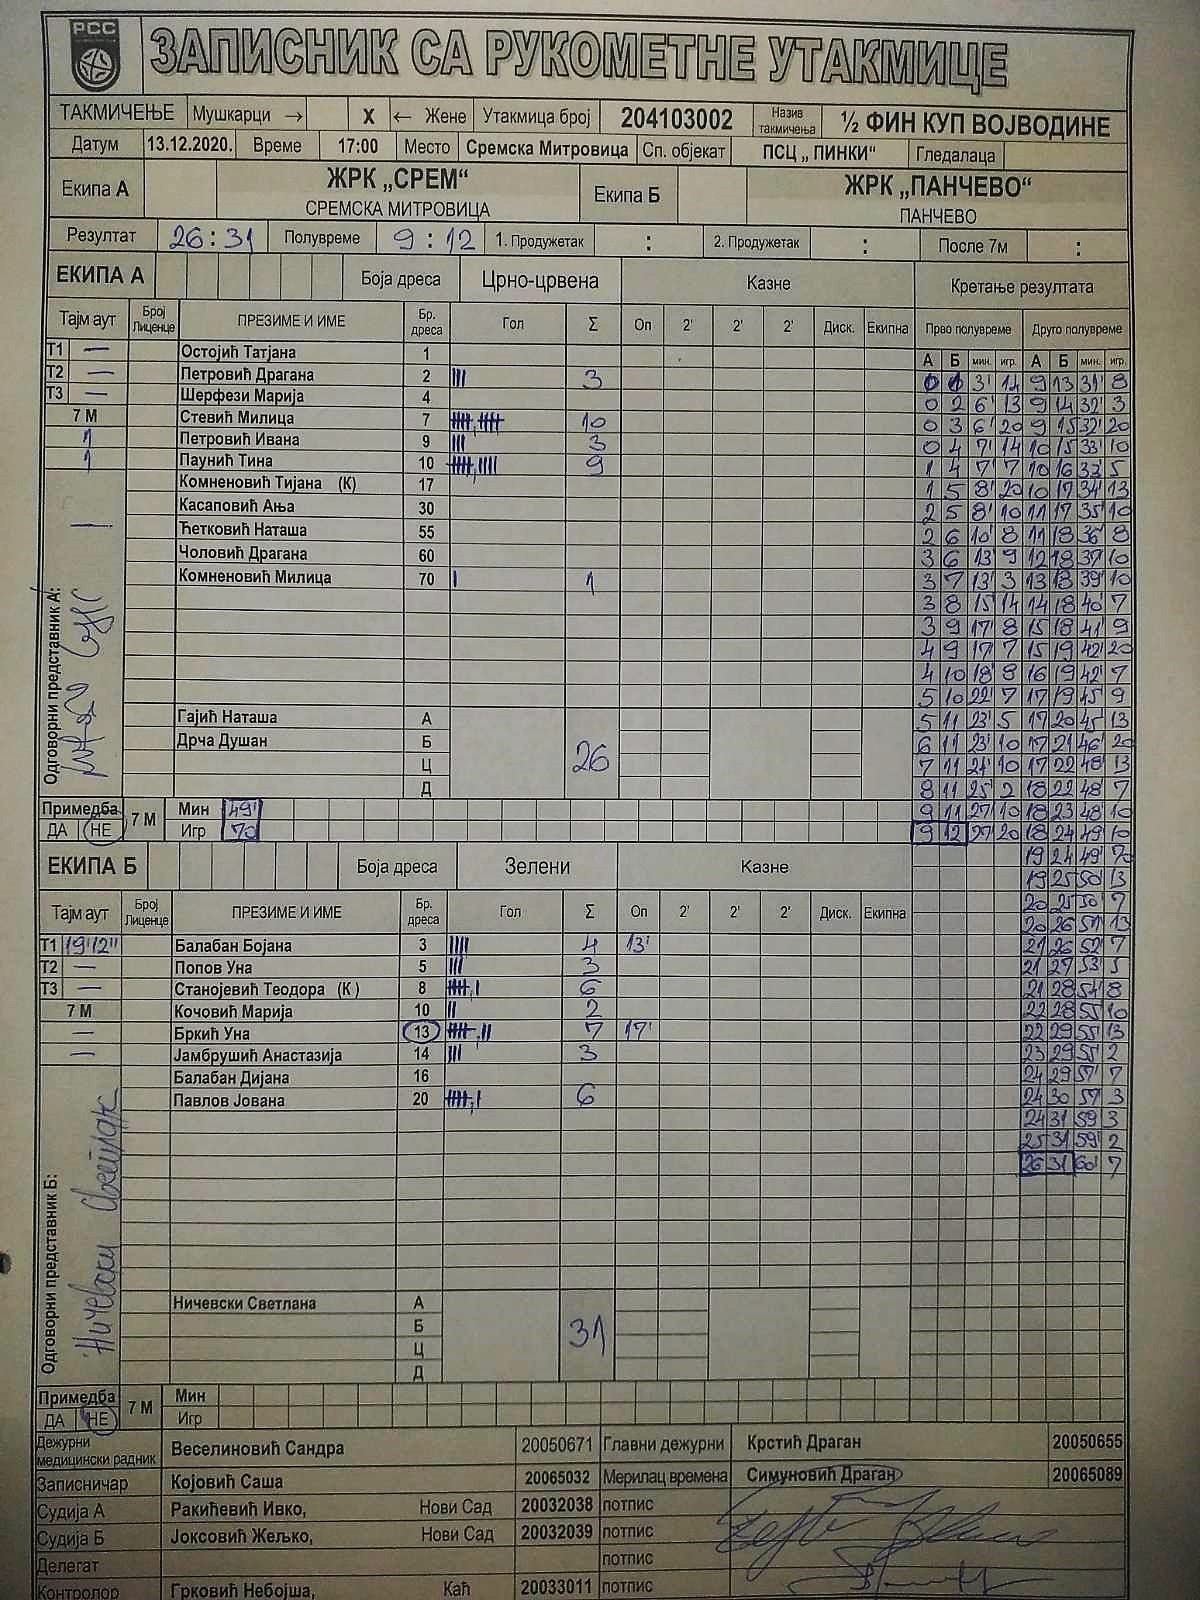 РСС
ЗАПИСНИК СА РУКОМЕТНЕ УТАКМИЦЕ
ТАКМИЧЕЊЕ Мушкарци → X ← Жене Утакмица број 204103002 Назив такмичења ½ ФИН КУП ВОЈВОДИНЕ
Датум 13.12.2020. Време 17:00 Место Сремска Митровица Сп. објекат ПСЦ „ ПИНКИ“ Гледалаца
Екипа А ЖРК „СРЕМ“ СРЕМСКА МИТРОВИЦА Екипа Б ЖРК „ПАНЧЕВО“ ПАНЧЕВО
Резултат 26 : 31 Полувреме 9 : 12 1. Продужетак : 2. Продужетак : После 7м :
ЕКИПА А Боја дреса Црно-црвена Казне Кретање резултата
Тајм аут Број Лиценце ПРЕЗИМЕ И ИМЕ Бр. дреса Гол Σ Оп 2' 2' 2' Диск. Екипна Прво полувреме Друго полувреме
А Б мин. игр. А Б мин. игр.
Т1 — Остојић Татјана 1
Т2 — Петровић Драгана 2 III 3
Т3 — Шерфези Марија 4
7 М Стевић Милица 7 10
1 Петровић Ивана 9 III 3
1 Паунић Тина 10 9
Комненовић Тијана (К) 17
Касаповић Ања 30
Ћетковић Наташа 55
Чоловић Драгана 60
Комненовић Милица 70 I 1
Одговорни представник А:
Гајић Наташа А
Дрча Душан Б 26
Ц
Д
0 1 3' 14 9 13 31' 8
0 2 6' 13 9 14 32' 3
0 3 6' 20 9 15 32' 20
0 4 7' 14 10 15 33' 10
1 4 7' 7 10 16 33' 5
1 5 8' 20 10 17 34' 13
2 5 8' 10 11 17 35' 10
2 6 10' 8 11 18 36' 8
3 6 13' 9 12 18 37' 10
3 7 13' 3 13 18 39' 10
3 8 15' 14 14 18 40' 7
3 9 17' 8 15 18 41' 9
4 9 17' 7 15 19 42' 20
4 10 18' 8 16 19 42' 7
5 10 22' 7 17 19 45' 9
5 11 23' 5 17 20 45' 13
6 11 23' 10 17 21 46' 20
7 11 24' 10 17 22 48' 13
8 11 25' 2 18 22 48' 7
9 11 27' 10 18 23 48' 10
9 12 27' 20 18 24 49' 10
19 24 49' 70
19 25 50' 13
20 25 50' 7
20 26 51' 13
21 26 52' 7
21 27 53' 5
21 28 54' 8
22 28 55' 10
22 29 55' 13
23 29 55' 2
24 29 57' 7
24 30 57' 3
24 31 59' 3
25 31 59' 2
26 31 60' 7
Примедба 7 М Мин 49'
ДА НЕ Игр 70
ЕКИПА Б Боја дреса Зелени Казне
Тајм аут Број Лиценце ПРЕЗИМЕ И ИМЕ Бр. дреса Гол Σ Оп 2' 2' 2' Диск. Екипна
Т1 19'12'' Балабан Бојана 3 IIII 4 13'
Т2 — Попов Уна 5 III 3
Т3 — Станојевић Теодора (К ) 8 6
7 М Кочовић Марија 10 II 2
— Бркић Уна 13 7 17'
— Јамбрушић Анастазија 14 III 3
Балабан Дијана 16
Павлов Јована 20 6
Одговорни представник Б: Ничевски Светлана
Ничевски Светлана А
Б 31
Ц
Д
Примедба 7 М Мин
ДА НЕ Игр
Дежурни медицински радник Веселиновић Сандра 20050671 Главни дежурни Крстић Драган 20050655
Записничар Којовић Саша 20065032 Мерилац времена Симуновић Драган 20065089
Судија А Ракићевић Ивко, Нови Сад 20032038 потпис
Судија Б Јоксовић Жељко, Нови Сад 20032039 потпис
Делегат потпис
Контролор Грковић Небојша, Каћ 20033011 потпис